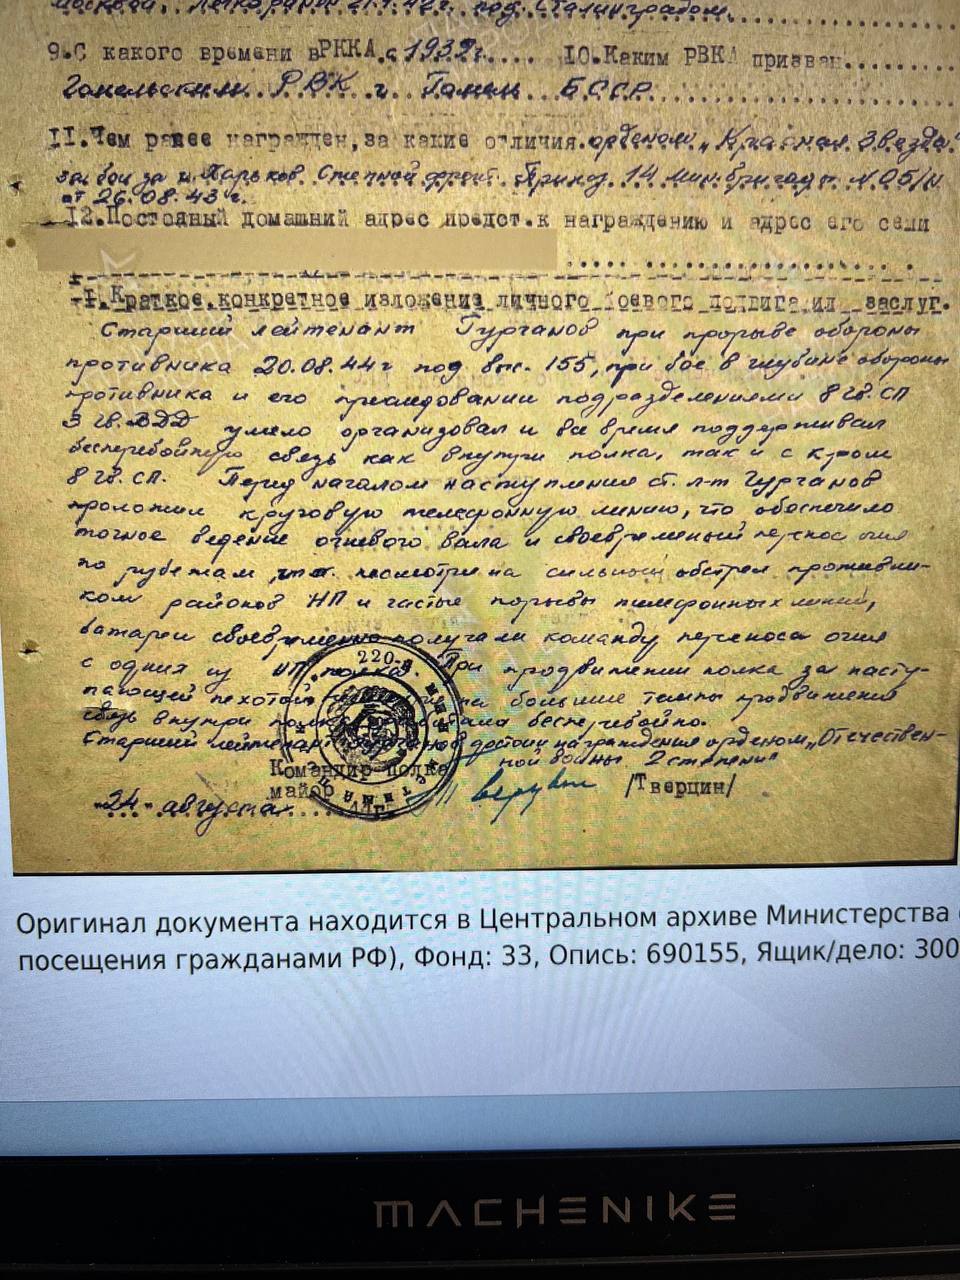 Москвой, легко ранен 21.9.42г. под Сталинградом.
9.С какого времени в РККА. с 1932г. 10.Каким РВКА призван
Гомельским РВК г. Гомель БССР
11.Чем ранее награжден,за какие отличия.орденом „Красная Звезда"
за бои за г. Харьков Степной фронт. Приказ 14 мин.бригады N 05/н
от 26.08.43г.
12.Постояный домашний адрес предст.к награждению и адрес его семи
I.Краткое.конкретное изложение личного боевого подвига или заслуг.
Старший лейтенант Гурчанов при прорыве обороны
противника 20.08.44г под выс. 155, при бое в глубине обороны
противника и его преследовании подразделениями 8 гв. СП
3 гв. ВДД умело организовал и все время поддерживал
бесперебойную связь как внутри полка, так и с
8 гв. СП. Перед началом наступления ст. л-т Гурчанов
проложил круговую телефонную линию, что обеспечило
точное ведение огневого вала и своевременный перенос огня
по рубежам, несмотря на сильный обстрел противни-
ком районов НП и частые порывы телефонных линий,
батареи своевременно получали команду переноса огня
с одних из НП полка. При продвижении полка за насту-
пающей пехотой на большие темпы продвижения
связь внутри полка работала бесперебойно.
Старший лейтенант Гурчанов достоин награждения орденом „Отечествен-
ной войны 2 степени"
220-й
Командир полка
майор /Тверцин/
24 августа
Оригинал документа находится в Центральном архиве Министерства
посещения гражданами РФ), Фонд: 33, Опись: 690155, Ящик/дело: 300
MACHENIKE